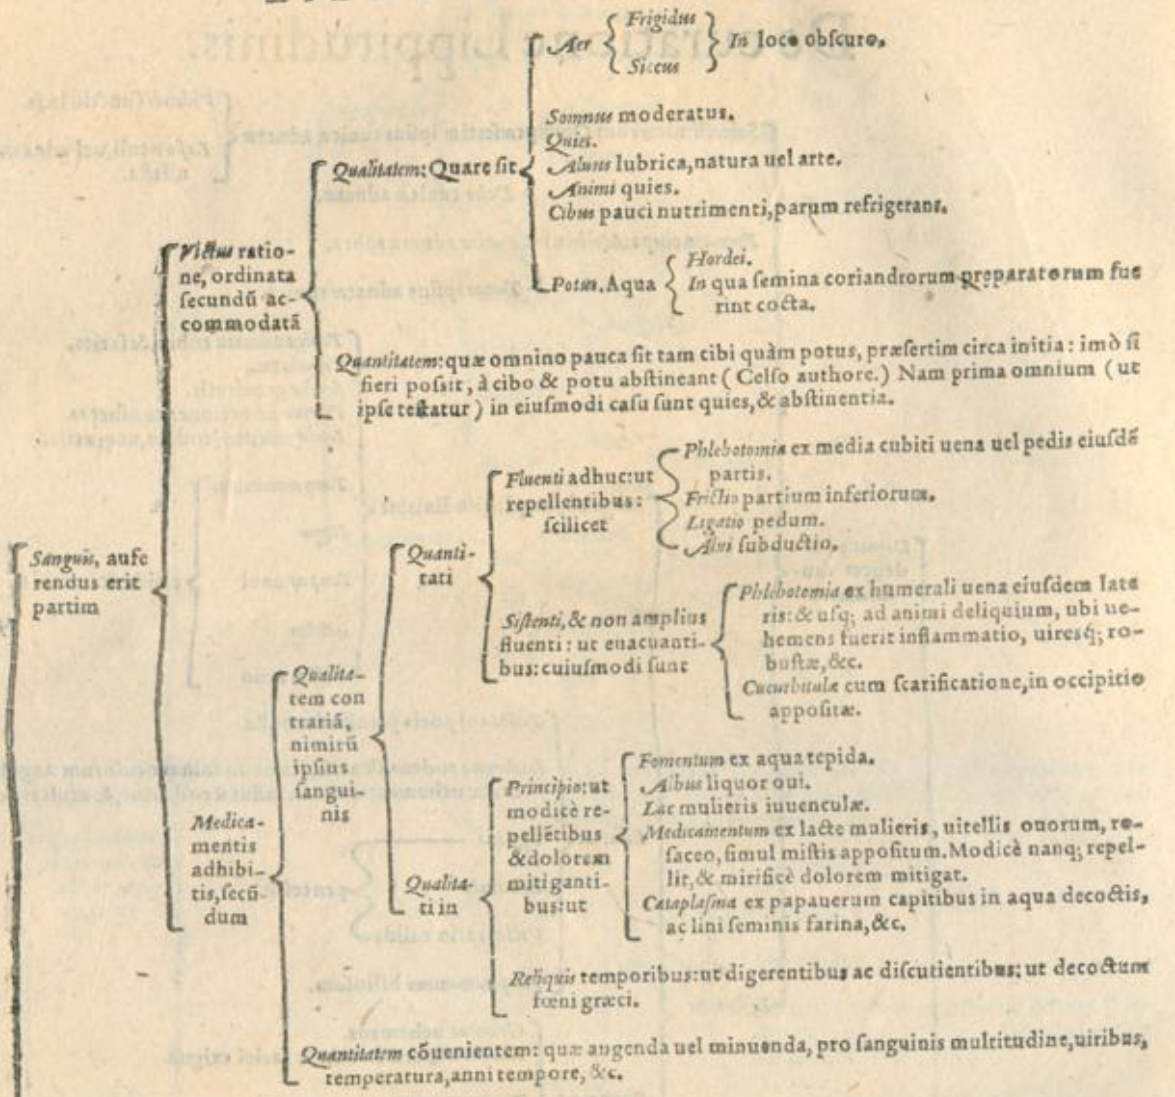 Aer
Frigidus
Siccus
In loco obſcuro.
Somnus moderatus.
Quies.
Aluus lubrica, natura uel arte.
Animi quies.
Cibus pauci nutrimenti, parum refrigerans.
Potus. Aqua
Hordei.
In qua ſemina coriandrorum preparatorum fue
rint cocta.
Qualitatem: Quare ſit
Victus ratio-
ne, ordinata
ſecundũ ac-
commodatã
Quantitatem: quæ omnino pauca ſit tam cibi quàm potus, præſertim circa initia: imò ſi
fieri poſsit, à cibo & potu abſtineant (Celſo authore.) Nam prima omnium (ut
ipſe teſtatur) in eiuſmodi caſu ſunt quies, & abſtinentia.
Sanguis, aufe
rendus erit
partim
Medica-
mentis
adhibi-
tis, ſecũ
dum
Qualita-
tem con
trariã,
nimirũ
ipſius
ſangui-
nis
Quanti-
tati
Fluenti adhuc: ut
repellentibus:
ſcilicet
Phlebotomia ex media cubiti uena uel pedis eiuſdẽ
partis.
Frictio partium inferiorum.
Ligatio pedum.
Alui ſubductio.
Siſtenti, & non amplius
fluenti: ut euacuanti-
bus: cuiuſmodi ſunt
Phlebotomia ex humerali uena eiuſdem late
ris: & uſq; ad animi deliquium, ubi ue-
hemens fuerit inflammatio, uiresq́; ro-
buſtæ, &c.
Cucurbitulæ cum ſcarificatione, in occipitio
appoſitæ.
Qualita-
ti in
Principio: ut
modicè re-
pellẽtibus
& dolorem
mitiganti-
bus: ut
Fomentum ex aqua tepida.
Albus liquor oui.
Lac mulieris iuuenculæ.
Medicamentum ex lacte mulieris, uitellis ouorum, ro-
ſaceo, ſimul miſtis appoſitum. Modicè nanq; repel-
lit, & mirificè dolorem mitigat.
Cataplaſma ex papauerum capitibus in aqua decoctis,
ac lini ſeminis farina, &c.
Reliquis temporibus: ut digerentibus ac diſcutientibus: ut decoctum
fœni græci.
Quantitatem cõuenientem: quæ augenda uel minuenda, pro ſanguinis multitudine, uiribus,
temperatura, anni tempore, &c.